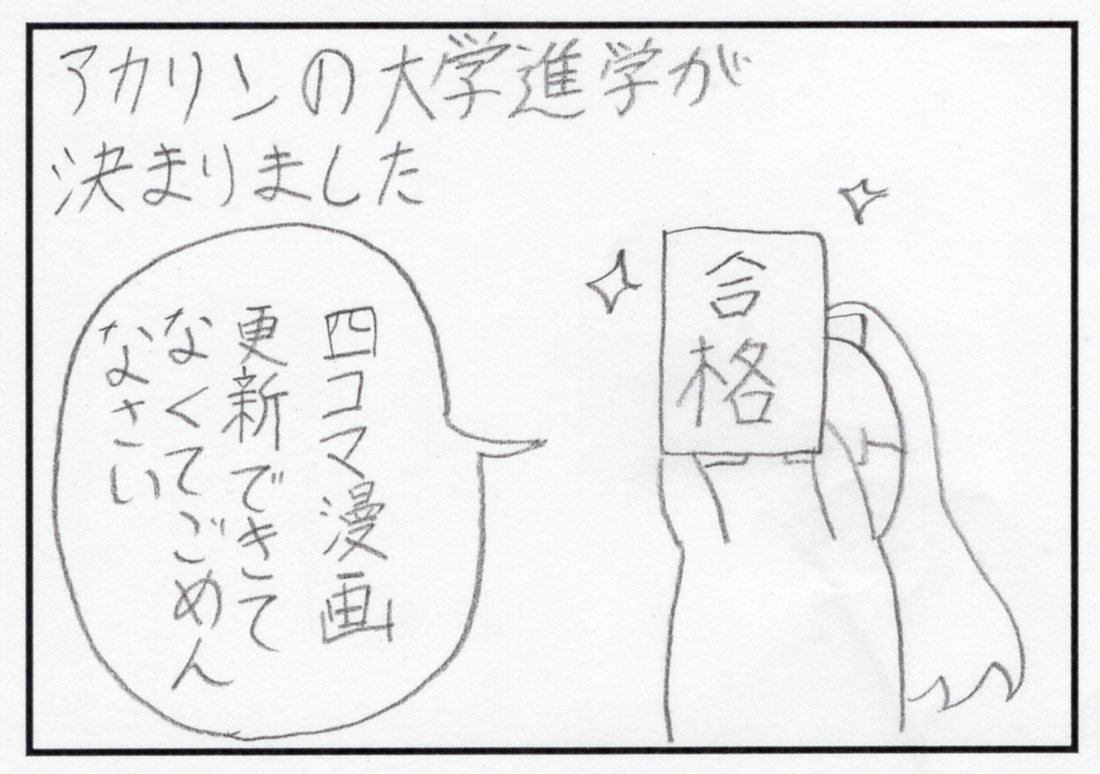 アカリンの大学進学が
決まりました
四コマ漫画
更新できて
なくてごめん
なさい
合格